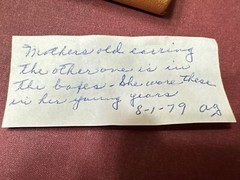 Mothers old earring
the other one is in
the boxes - She wore these
in her young years
8-1-79 ag